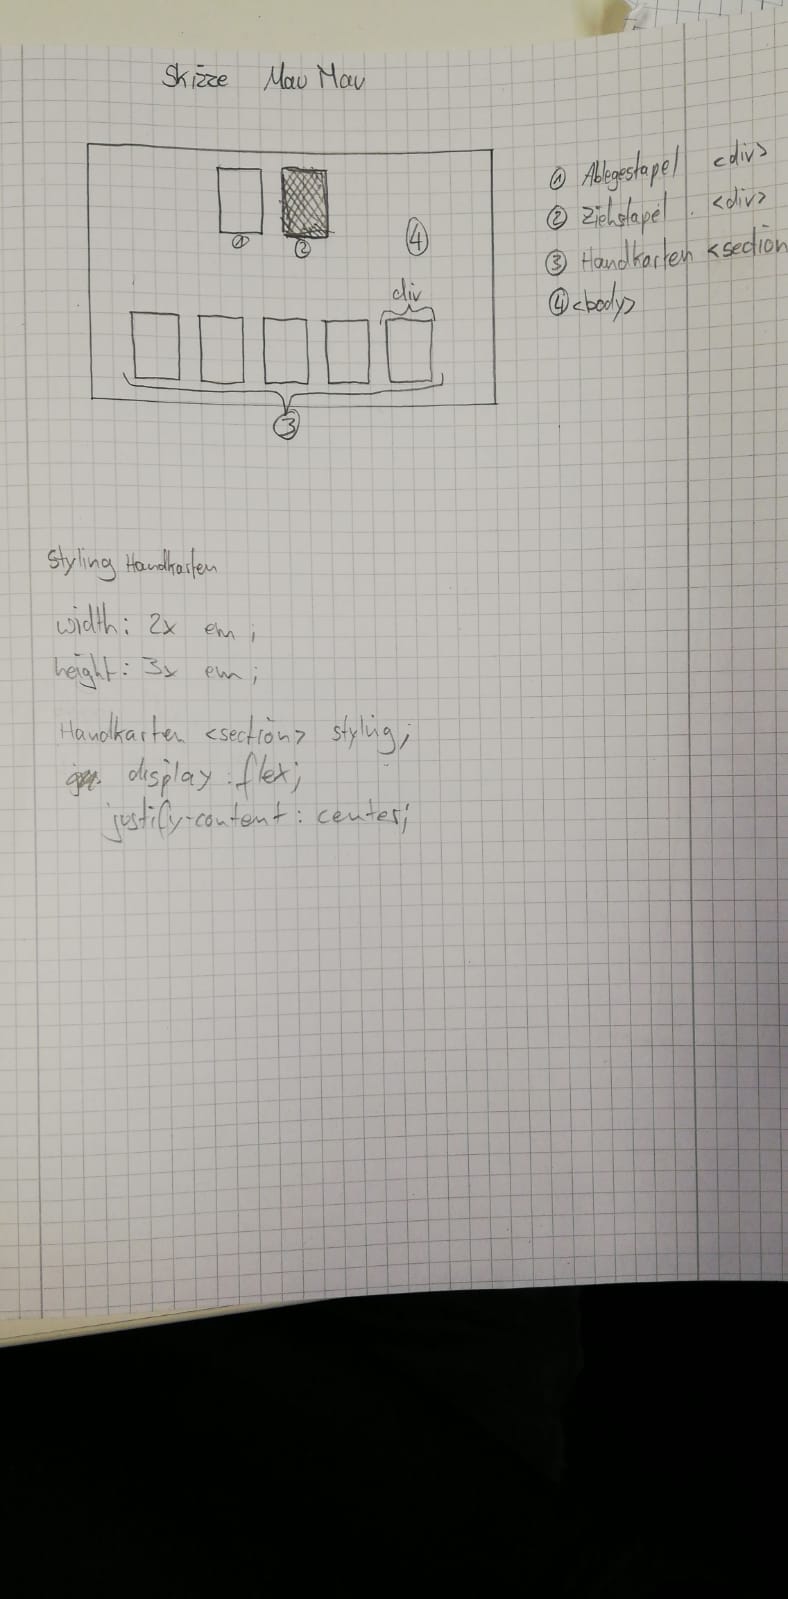 Skizze Mau Mau
① Ablegestapel <div>
② Ziehstapel <div>
③ Handkarten <section
④ <body>
① ②
④
div
③
Styling Handkarten
width: 2x em;
height: 3x em;
Handkarten <section> styling;
display: flex;
justify-content: center;